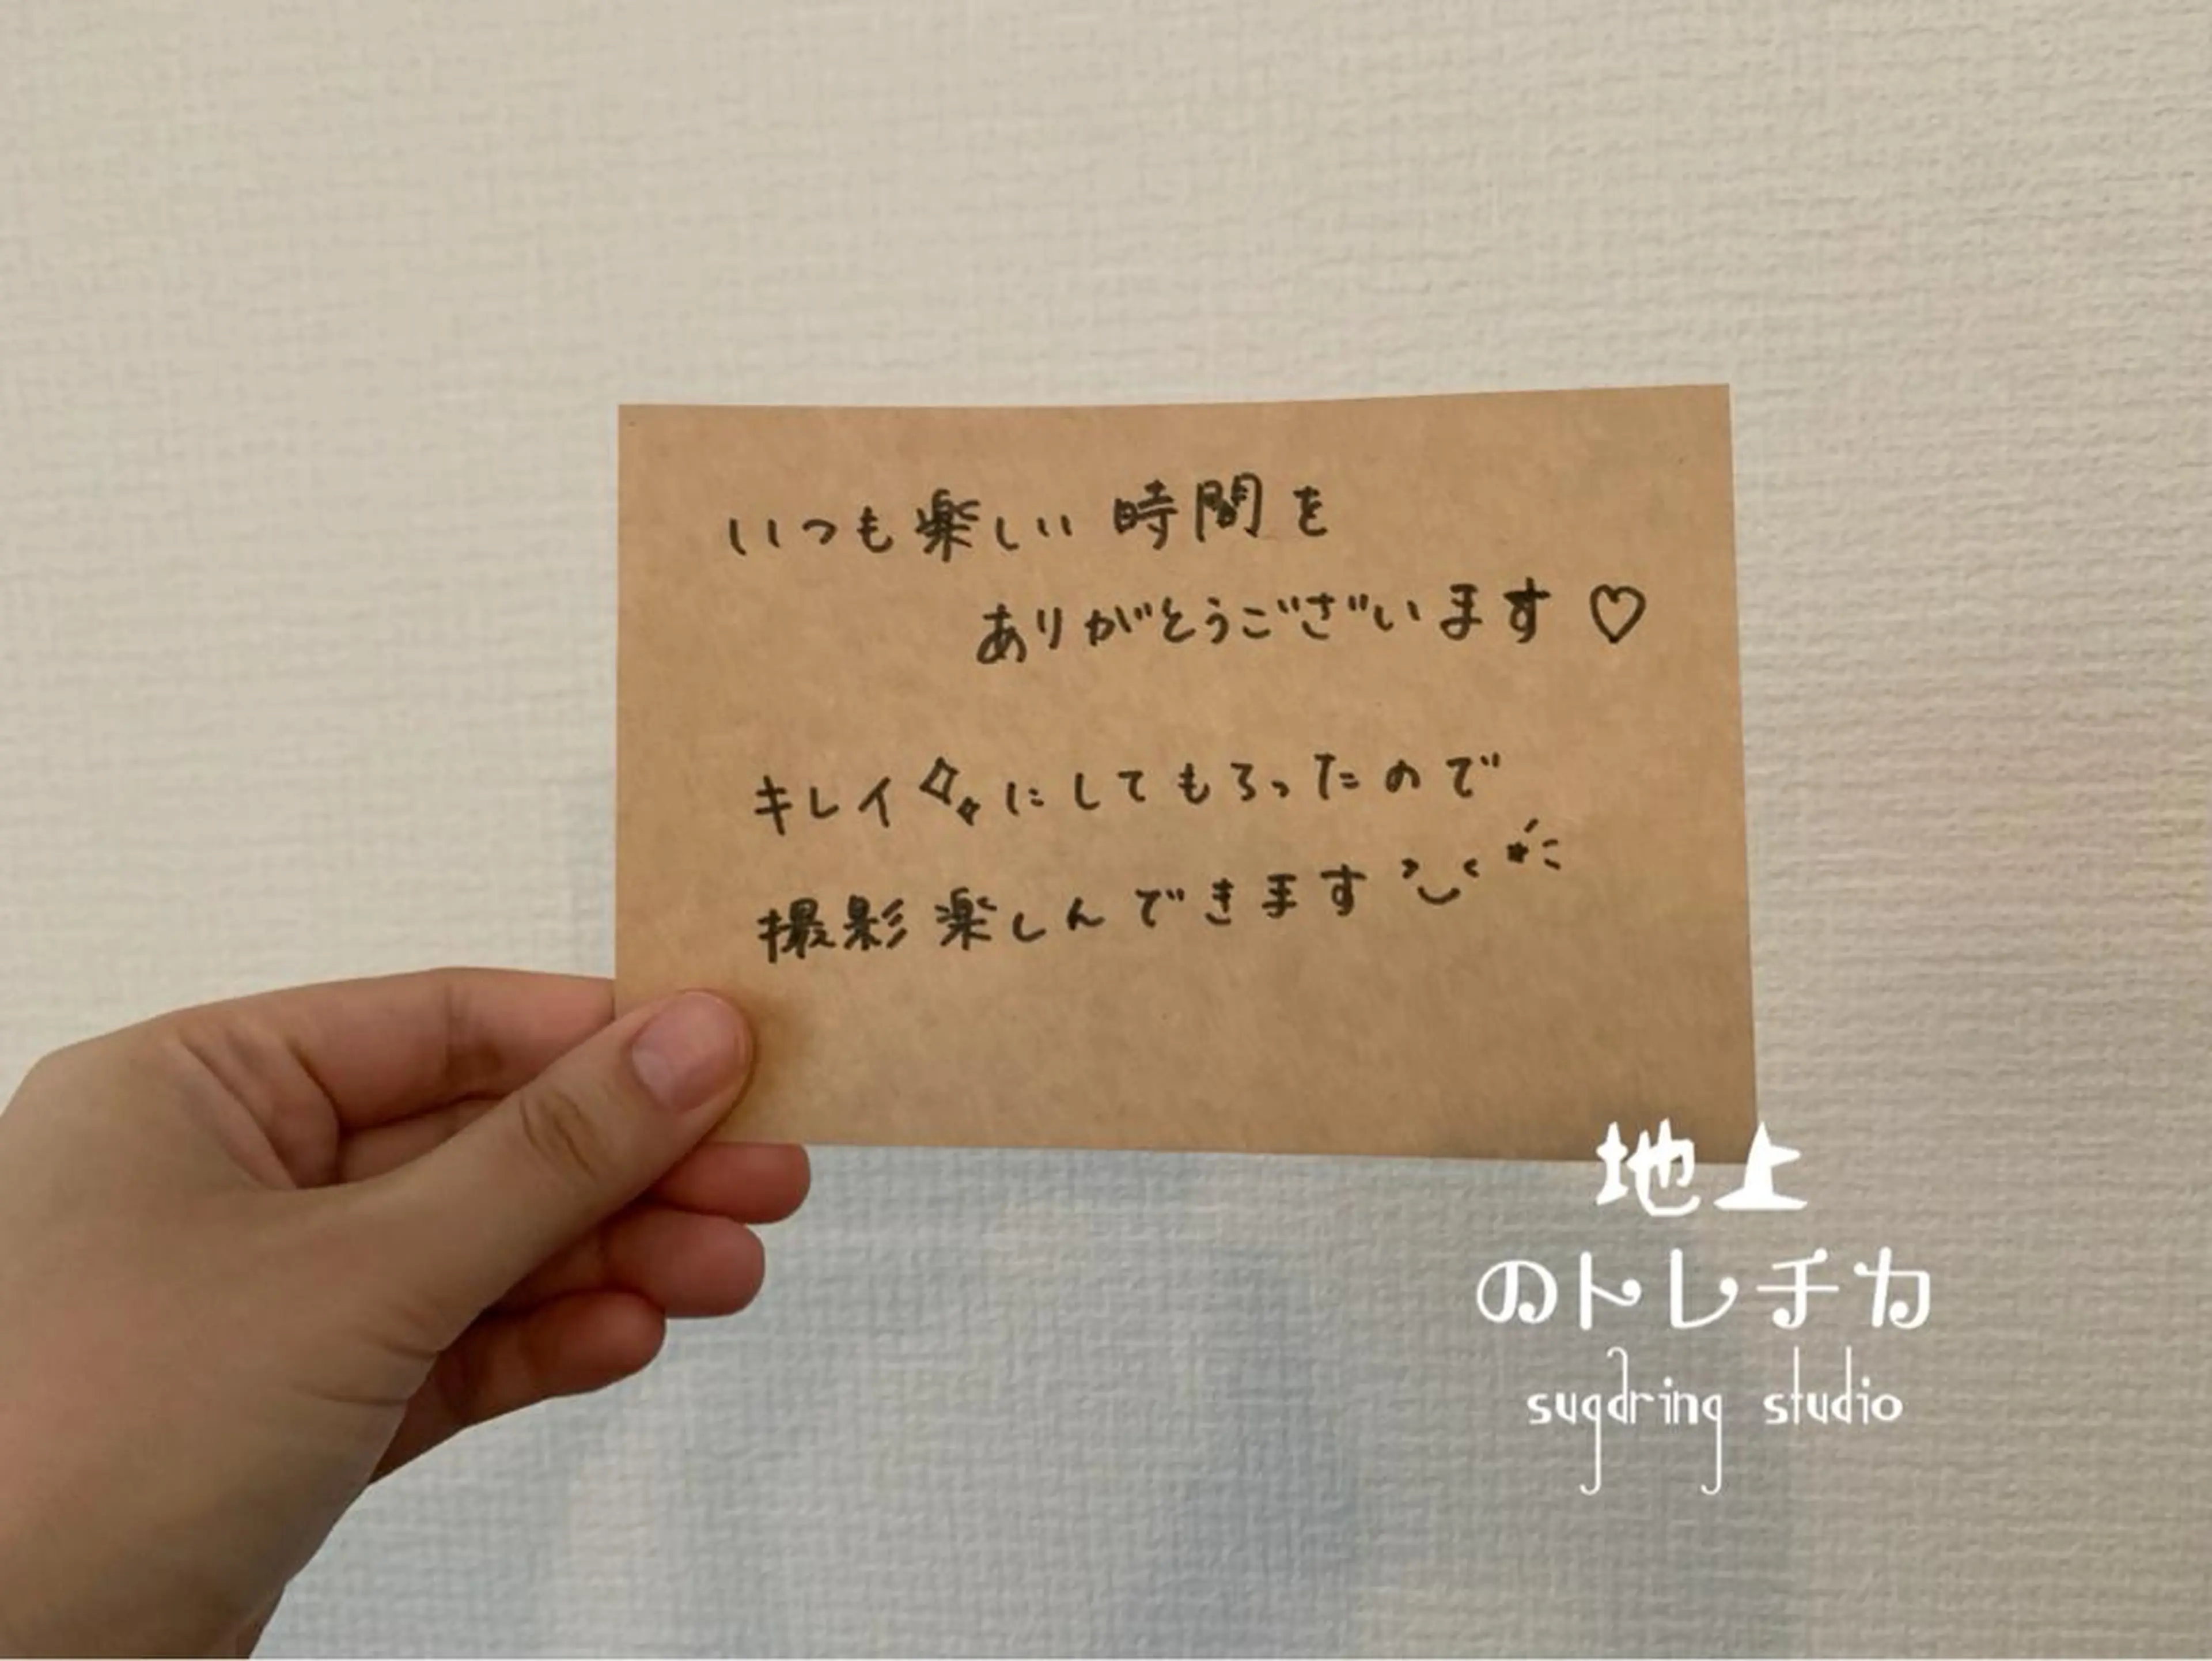 いつも楽しい時間を
ありがとうございます♡
キレイ✨にしてもらったので
撮影楽しんできます
地上
のトレチカ
sugdring studio